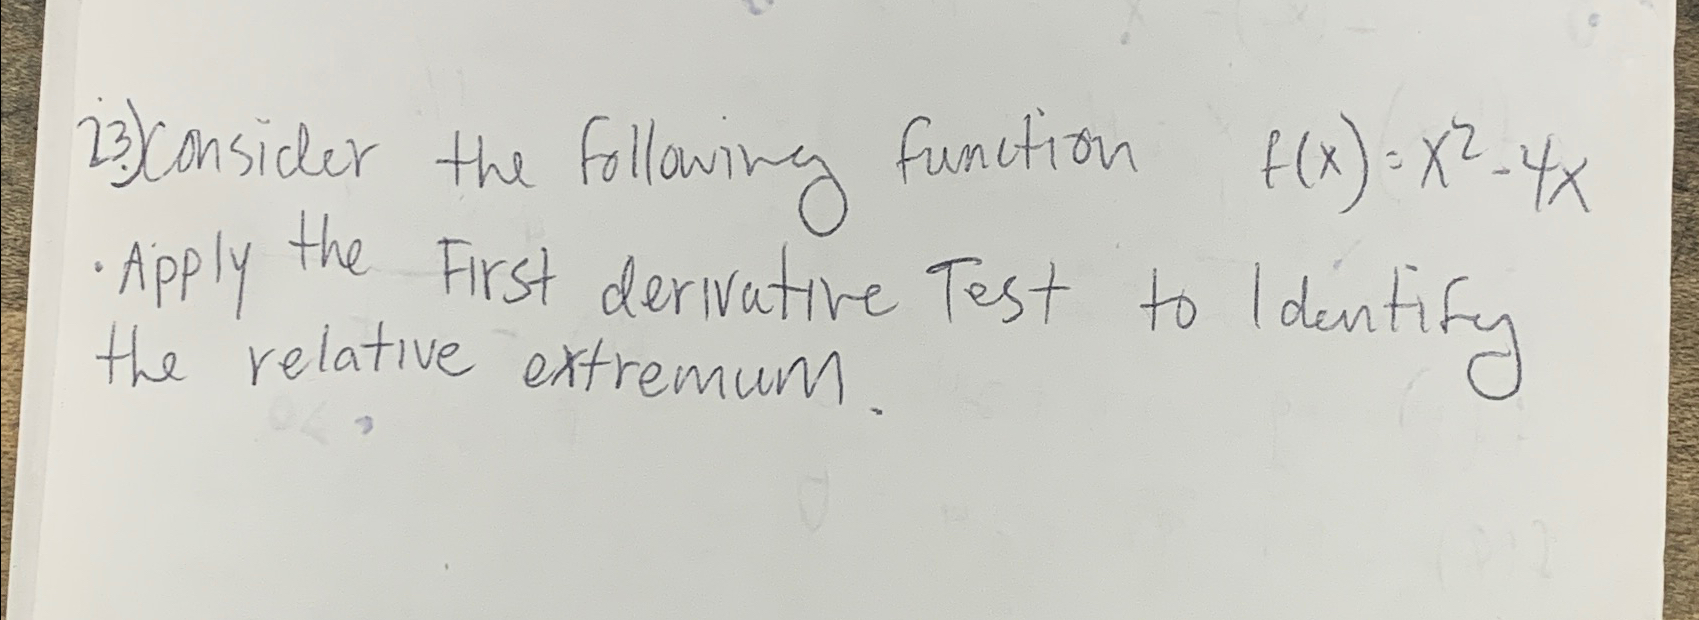 23) Consider the following function f(x) = x² - 4x
· Apply the First derivative Test to Identify
the relative extremum.